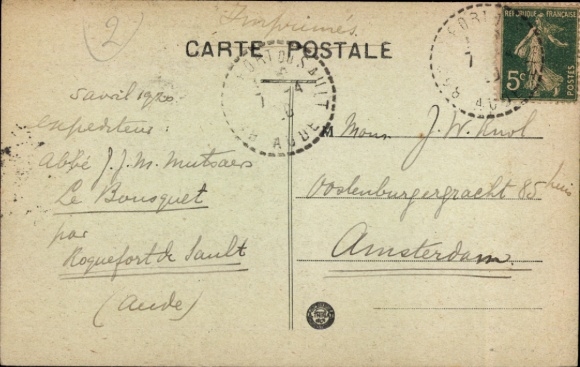 2
Imprimés.
CARTE POSTALE
5 avril 1920.
expéditeur:
Abbé J. J. M. Mutsaers
Le Bousquet
par
Roquefort de Sault
(Aude)
M Mons. J. W. Knol
Oostenburgergracht 85 huis
Amsterdam
7
AUDE
7 -4
AUDE
REPUBLIQUE FRANÇAISE
5c
POSTES